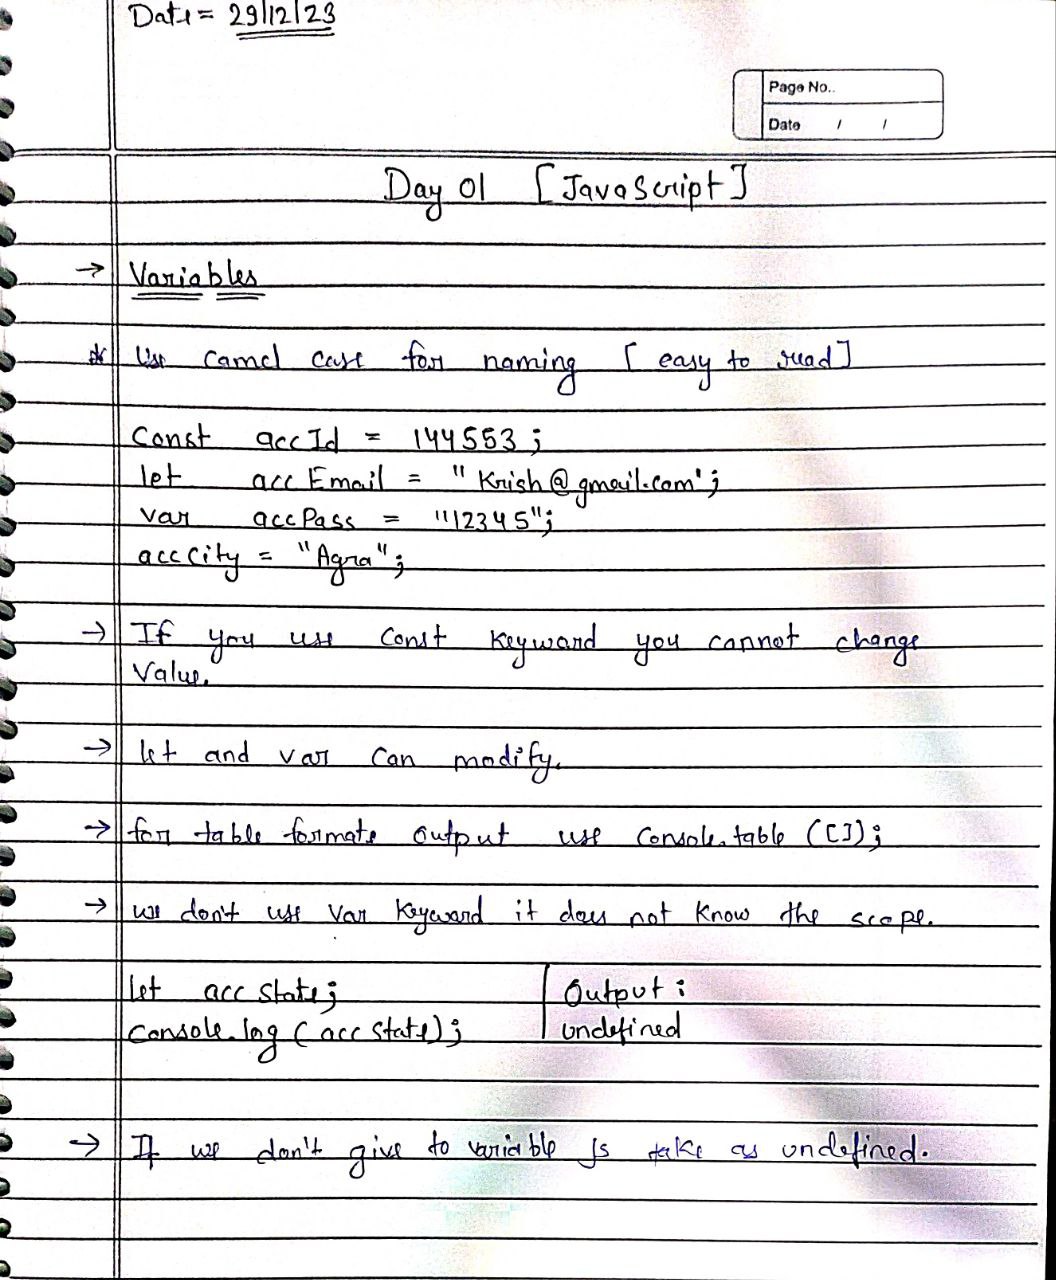 Date = 29/12/23
Page No..
Date / /
Day 01 [JavaScript]
→ Variables
* Use camel case for naming [easy to read]
Const accId = 144553;
let accEmail = "Krish@gmail.com";
var accPass = "12345";
accCity = "Agra";
→ If you use Const keyward you cannot change
Value.
→ let and var can modify.
→ for table formate output use console.table ([]);
→ we don't use Var keyword it does not know the scope.
let accState; | Output:
Console.log (accState); | undefined
→ If we don't give to variable Js take as undefined.